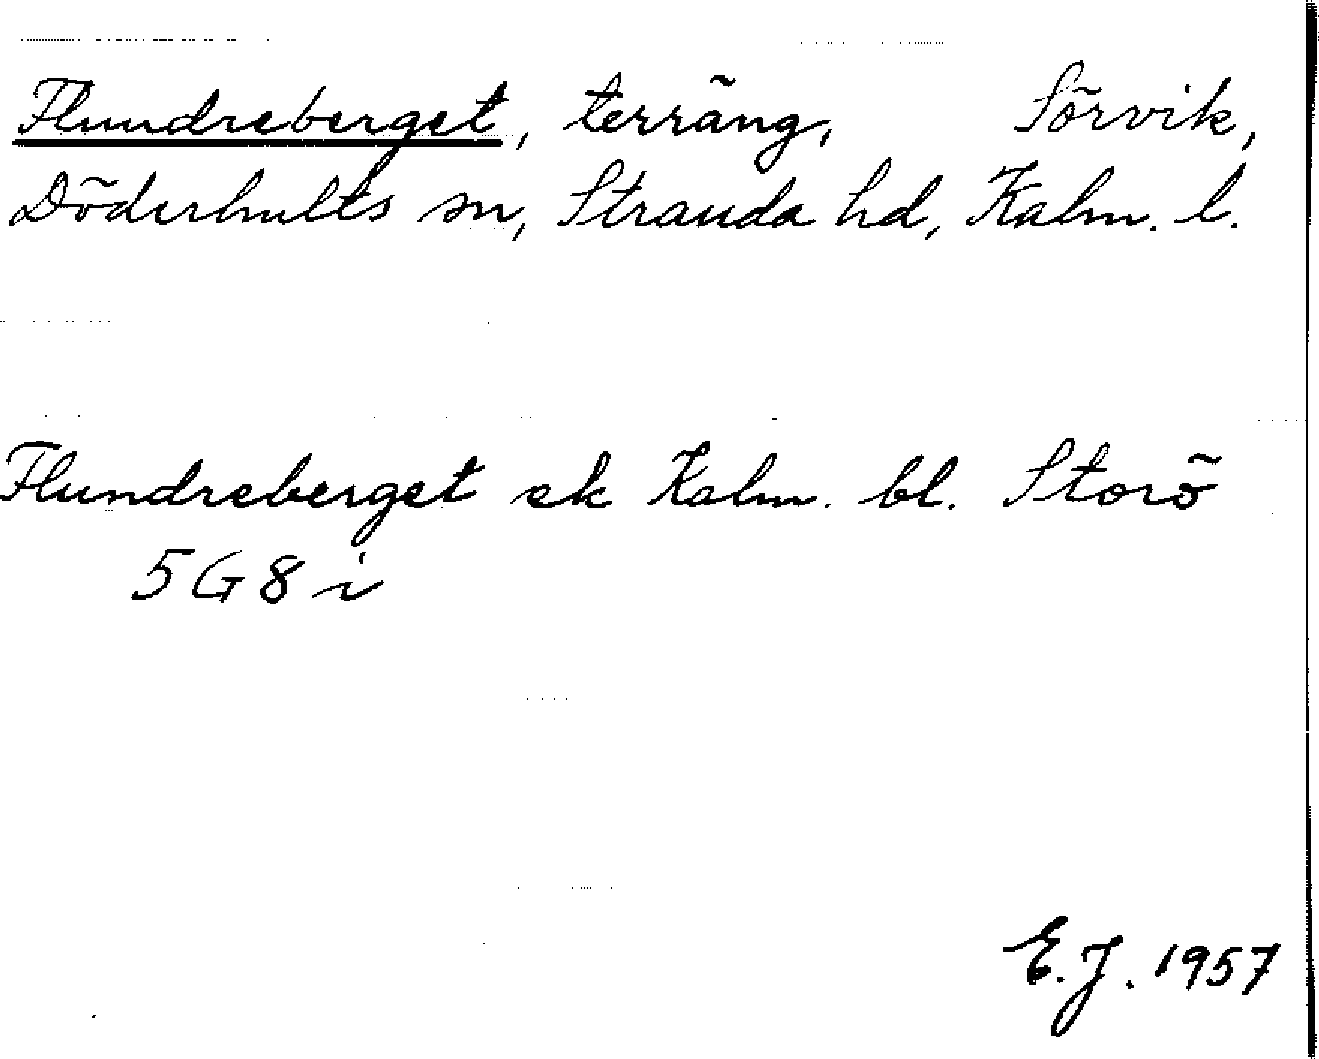 Flundreberget, terräng, Sörvik,
Döderhults sn, Stranda hd, Kalm. l.
Flundreberget ek Kalm. bl. Storö
5G8i
E.J. 1957